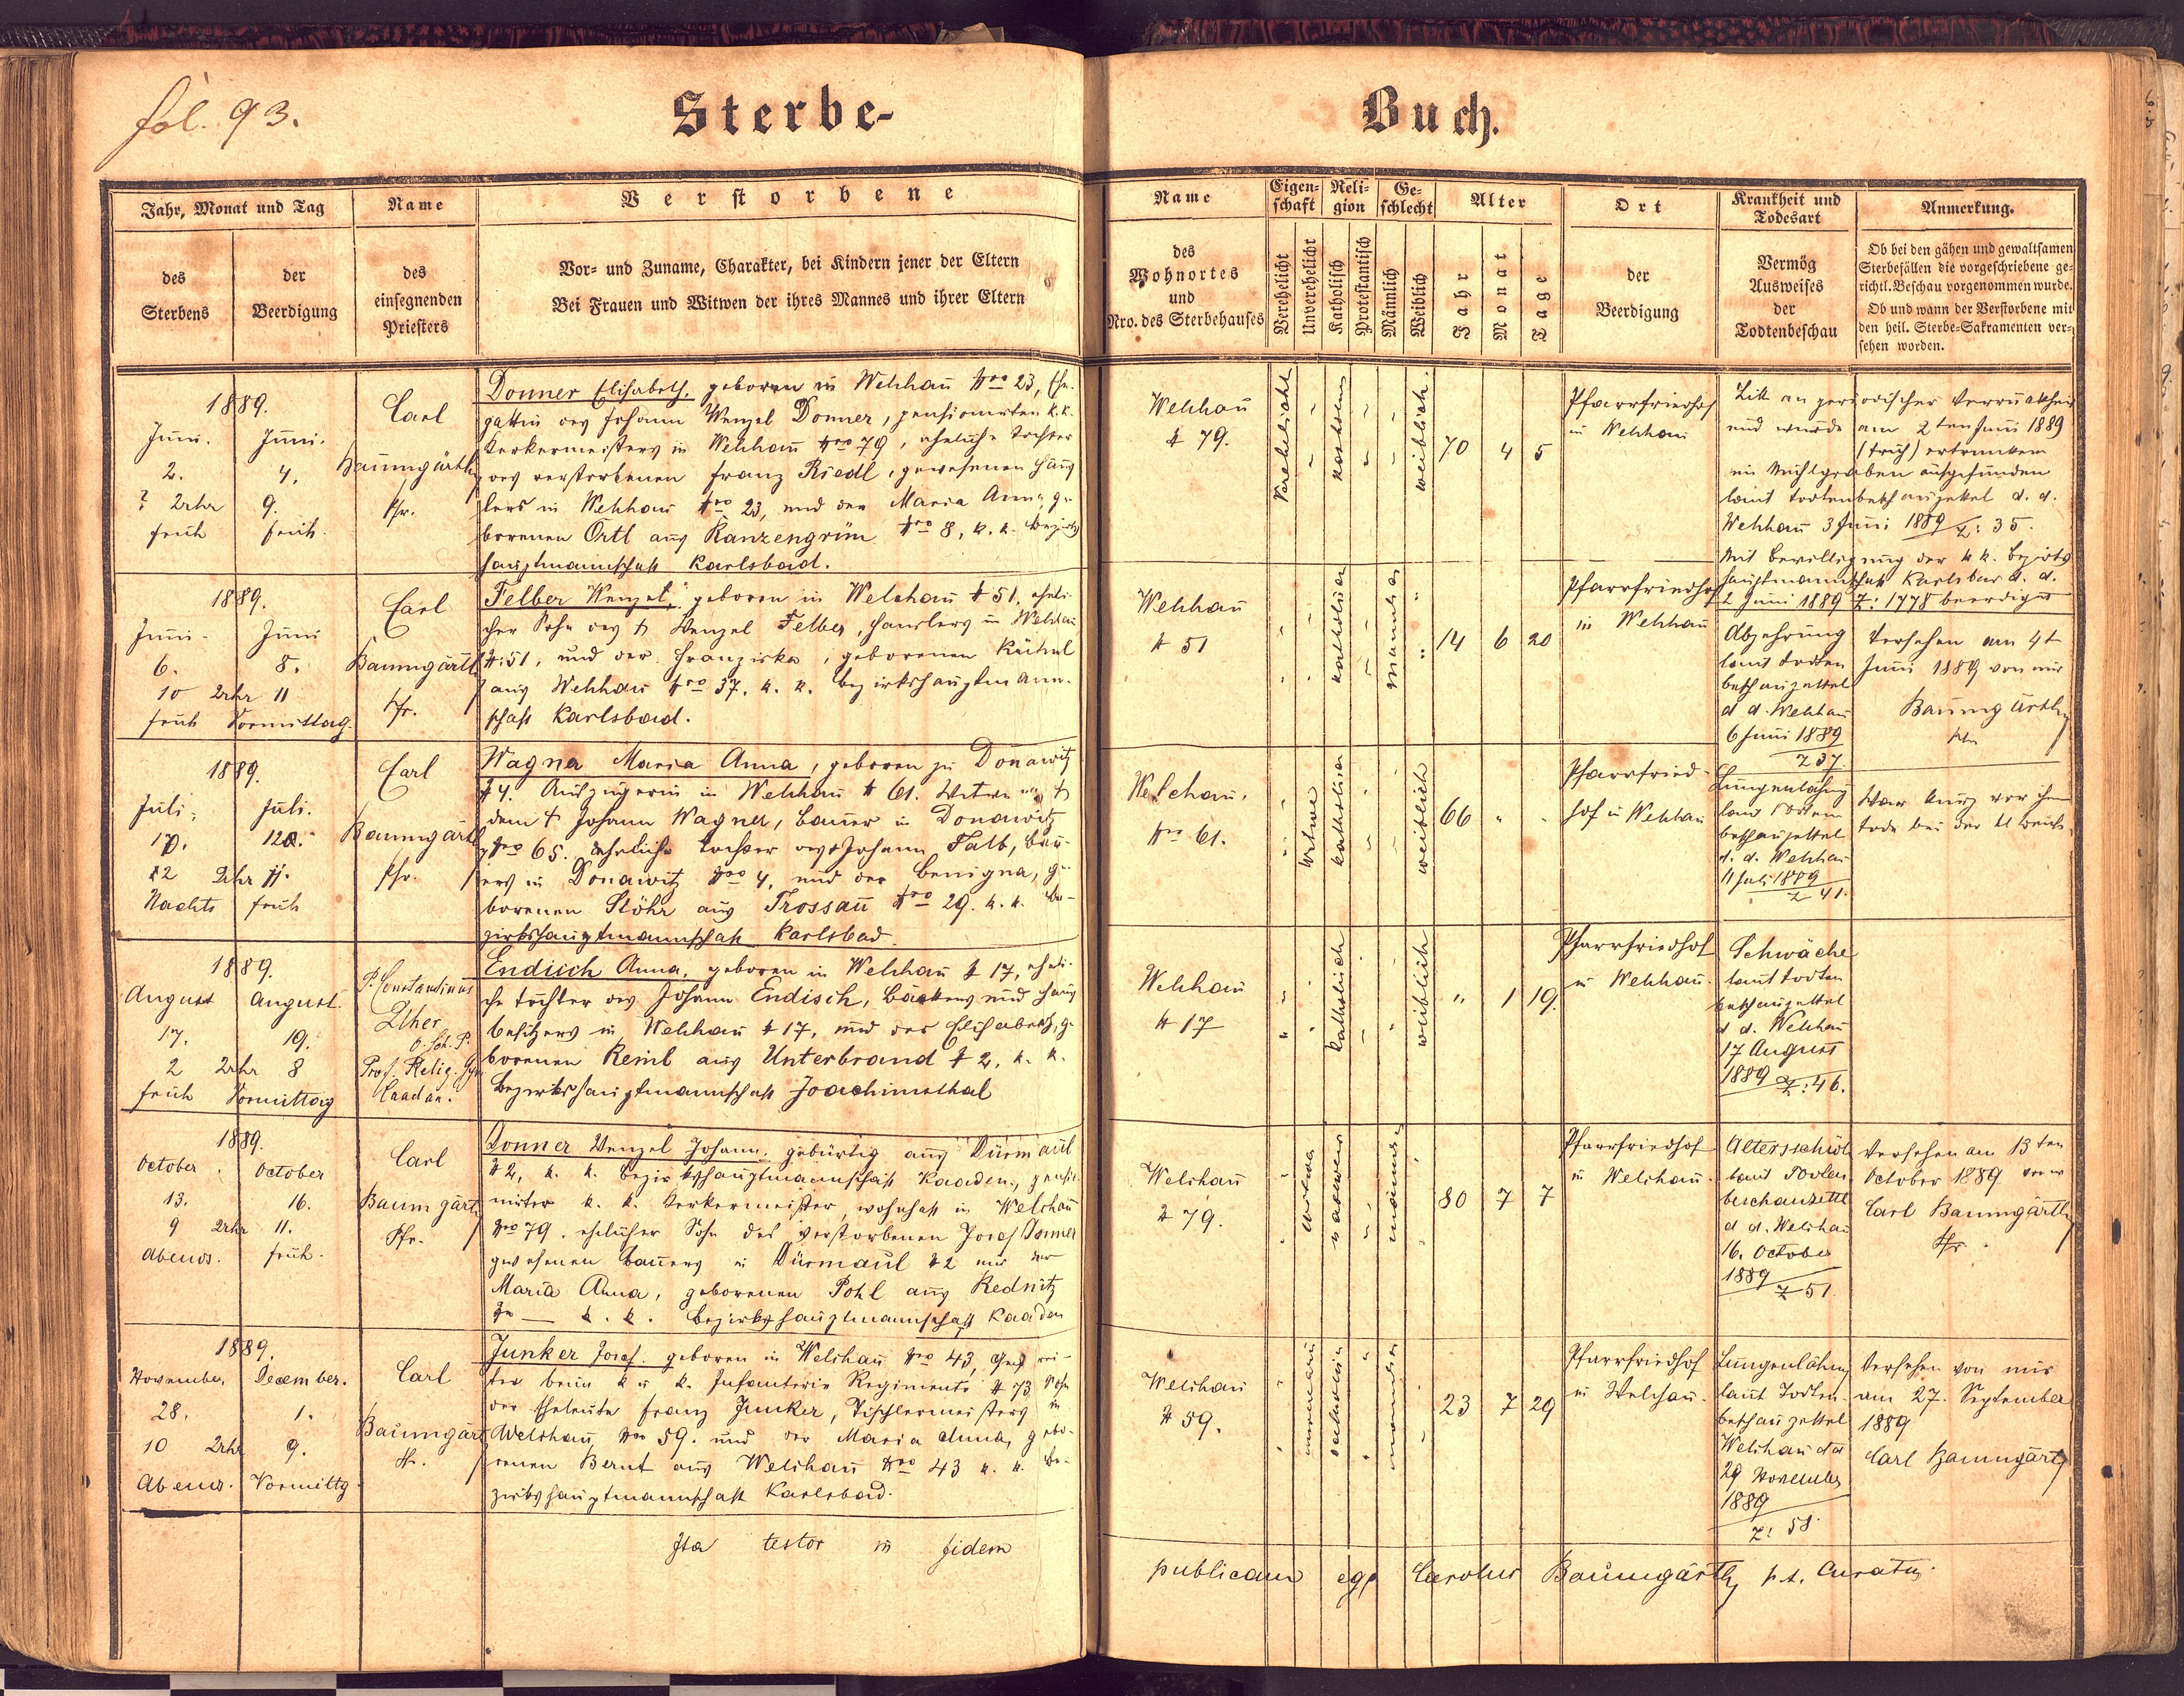 fol. 93.
Sterbe-
Buch.
Jahr, Monat und Tag
des
Sterbens
der
Beerdigung
Name
des
einsegnenden
Priesters
Verstorbene
Vor- und Zuname, Charakter, bei Kindern jener der Eltern
Bei Frauen und Witwen der ihres Mannes und ihrer Eltern
Name
des
Wohnortes
und
Nro. des Sterbehauses
Eigen-
schaft
Verehelicht
Unverehelicht
Reli-
gion
Katholisch
Protestantisch
Ge-
schlecht
Männlich
Weiblich
Alter
Jahr
Monat
Tage
Ort
der
Beerdigung
Krankheit und
Todesart
Vermög
Ausweises
der
Todtenbeschau
Anmerkung.
Ob bei den gähen und gewaltsamen
Sterbefällen die vorgeschriebene ge-
richtl. Beschau vorgenommen wurde.
Ob und wann der Verstorbene mit
den heil. Sterbe-Sakramenten ver-
sehen worden.
1889.
Juni. Juni.
2. 4.
Uhr 9.
früh früh
Carl
Baumgärtl
Pfr.
Donner Elisabeth, geboren in Welchau Nro 23, Ehe-
gattin des Johann Wenzel Donner, pensionirten k. k.
Kerkermeisters in Welchau Nro 79, eheliche Tochter
des verstorbenen Franz Riedl, gewesenen Häus
lers in Welchau Nro 23, und der Maria Anna, ge
borenen Örtl aus Ranzengrün Nro 8, k. k. Bezirks
hauptmannschaft Karlsbad.
Welchau
# 79.
Verehelicht
weiblich.
70 4 5
Pfarrfriedhof
in Welchau
Litt an periodischer Verrücktheit
und wurde am 2ten Juni 1889
(früh) ertrunken
im Mühlgraben aufgefunden
laut Todtenbeschauzettel d. d.
Welchau 3 Juni 1889 Z: 35.
Mit Bewilligung der k k. Bezirks
hauptmannschaft Karlsbad d. d.
2 Juni 1889 Z: 1778 beerdigt
1889.
Juni. Juni
6. 8.
10 Uhr 11
früh Vormittag.
Carl
Baumgärtl
Pfr.
Felber Wenzel, geboren in Welchau # 51, eheli-
cher Sohn des † Wenzel Felber, Hauslers in Welchau
#: 51, und der Franziska, geborenen Kühnl
aus Welchau Nro 37. k. k. Bezirkshauptmann-
schaft Karlsbad.
Welchau
# 51
katholisch
männlich
14 6 20
Pfarrfriedhof
in Welchau
Abzehrung
laut Todten
beschauzettel
d d. Welchau
6 Juni 1889
Z 37.
Versehen am 4t
Juni 1889 von mir
Baumgärtl
Pfr
1889.
Juli. Juli.
12 Uhr 11.
Nachts früh
Carl
Baumgärtl
Pfr.
Wagner Maria Anna, geboren zu Donawitz
# 4. Auszügerin in Welchau # 61. Witwe nach
dem † Johann Wagner, Bauer in Donawitz
Nro 65. eheliche Tochter des Johann Falb, Bau-
ers in Donawitz Nro 4, und der Benigna, ge
borenen Stöhr aus Trossau Nro 29. k. k. Be-
zirkshauptmannschaft Karlsbad.
Welchau.
Nro 61.
Witwe
katholisch
weiblich
66
Pfarrfried-
hof in Welchau
Lungenlähmung
laut Todten
beschauzettel
d. d. Welchau
11 Juli 1889
Z 41.
War kurz vor ihrem
Tode bei der hl Beicht.
1889.
August August.
17. 19.
2 Uhr 8
früh Vormittag
P. Constantinus
Uher
Prof. Relig. Gym
Kaaden.
Endisch Anna, geboren in Welchau # 17, eheli-
che Tochter des Johann Endisch, Bäckers und Haus
besitzers in Welchau # 17, und der Elisabeth, ge
borenen Reinl aus Unterbrand # 2, k. k.
Bezirkshauptmannschaft Joachimsthal
Welchau
# 17
katholisch
weiblich
" 1 19.
Pfarrfriedhof
in Welchau.
Schwäche
laut Todten
beschauzettel
d d. Welchau
17 August
1889 Z: 46.
1889.
October October
13. 16.
9 Uhr 11.
Abends. früh.
Carl
Baumgärtl
Pfr.
Donner Wenzel Johann, gebürtig aus Dürmaul
# 2, k. k. Bezirkshauptmannschaft Kaaden, pensio
nirter k. k. Kerkermeister, wohnhaft in Welchau
Nro 79. ehelicher Sohn des verstorbenen Josef Donner
gewesenen Bauers in Dürmaul # 2 und der
Maria Anna, geborenen Pohl aus Rednitz
k. k. Bezirkshauptmannschaft Kaaden
Welchau
# 79.
Witwer
80 7 7
Pfarrfriedhof
in Welchau.
Altersschwäche
laut Todten
beschauzettel
d d. Welchau
16. October
1889
Z 51
Versehen am 13ten
October 1889 von
Carl Baumgärtl
Pfr.
1889.
November December.
28. 1.
10 Uhr 9.
Abends. Vormittg.
Carl
Baumgärtl
Pfr.
Junker Josef. geboren in Welchau Nro 43, Gefrei-
ter beim k u k. Infanterie Regimente # 73 Sohn
der Eheleute Franz Junker, Tischlermeisters in
Welchau Nro 59. und der Maria Anna, gebo-
renen Bernt aus Welchau Nro 43 k. k. Be-
zirkshauptmannschaft Karlsbad.
Welchau
# 59.
23 7 29
Pfarrfriedhof
in Welchau.
Lungenlähmung
laut Todten-
beschauzettel
Welchau dd
29 November
1889
Z: 58
Versehen von mir
am 27. September
1889
Carl Baumgärtl
Ita testor in fidem
publicam ego Carolus Baumgärtl, p. t. Curatus.